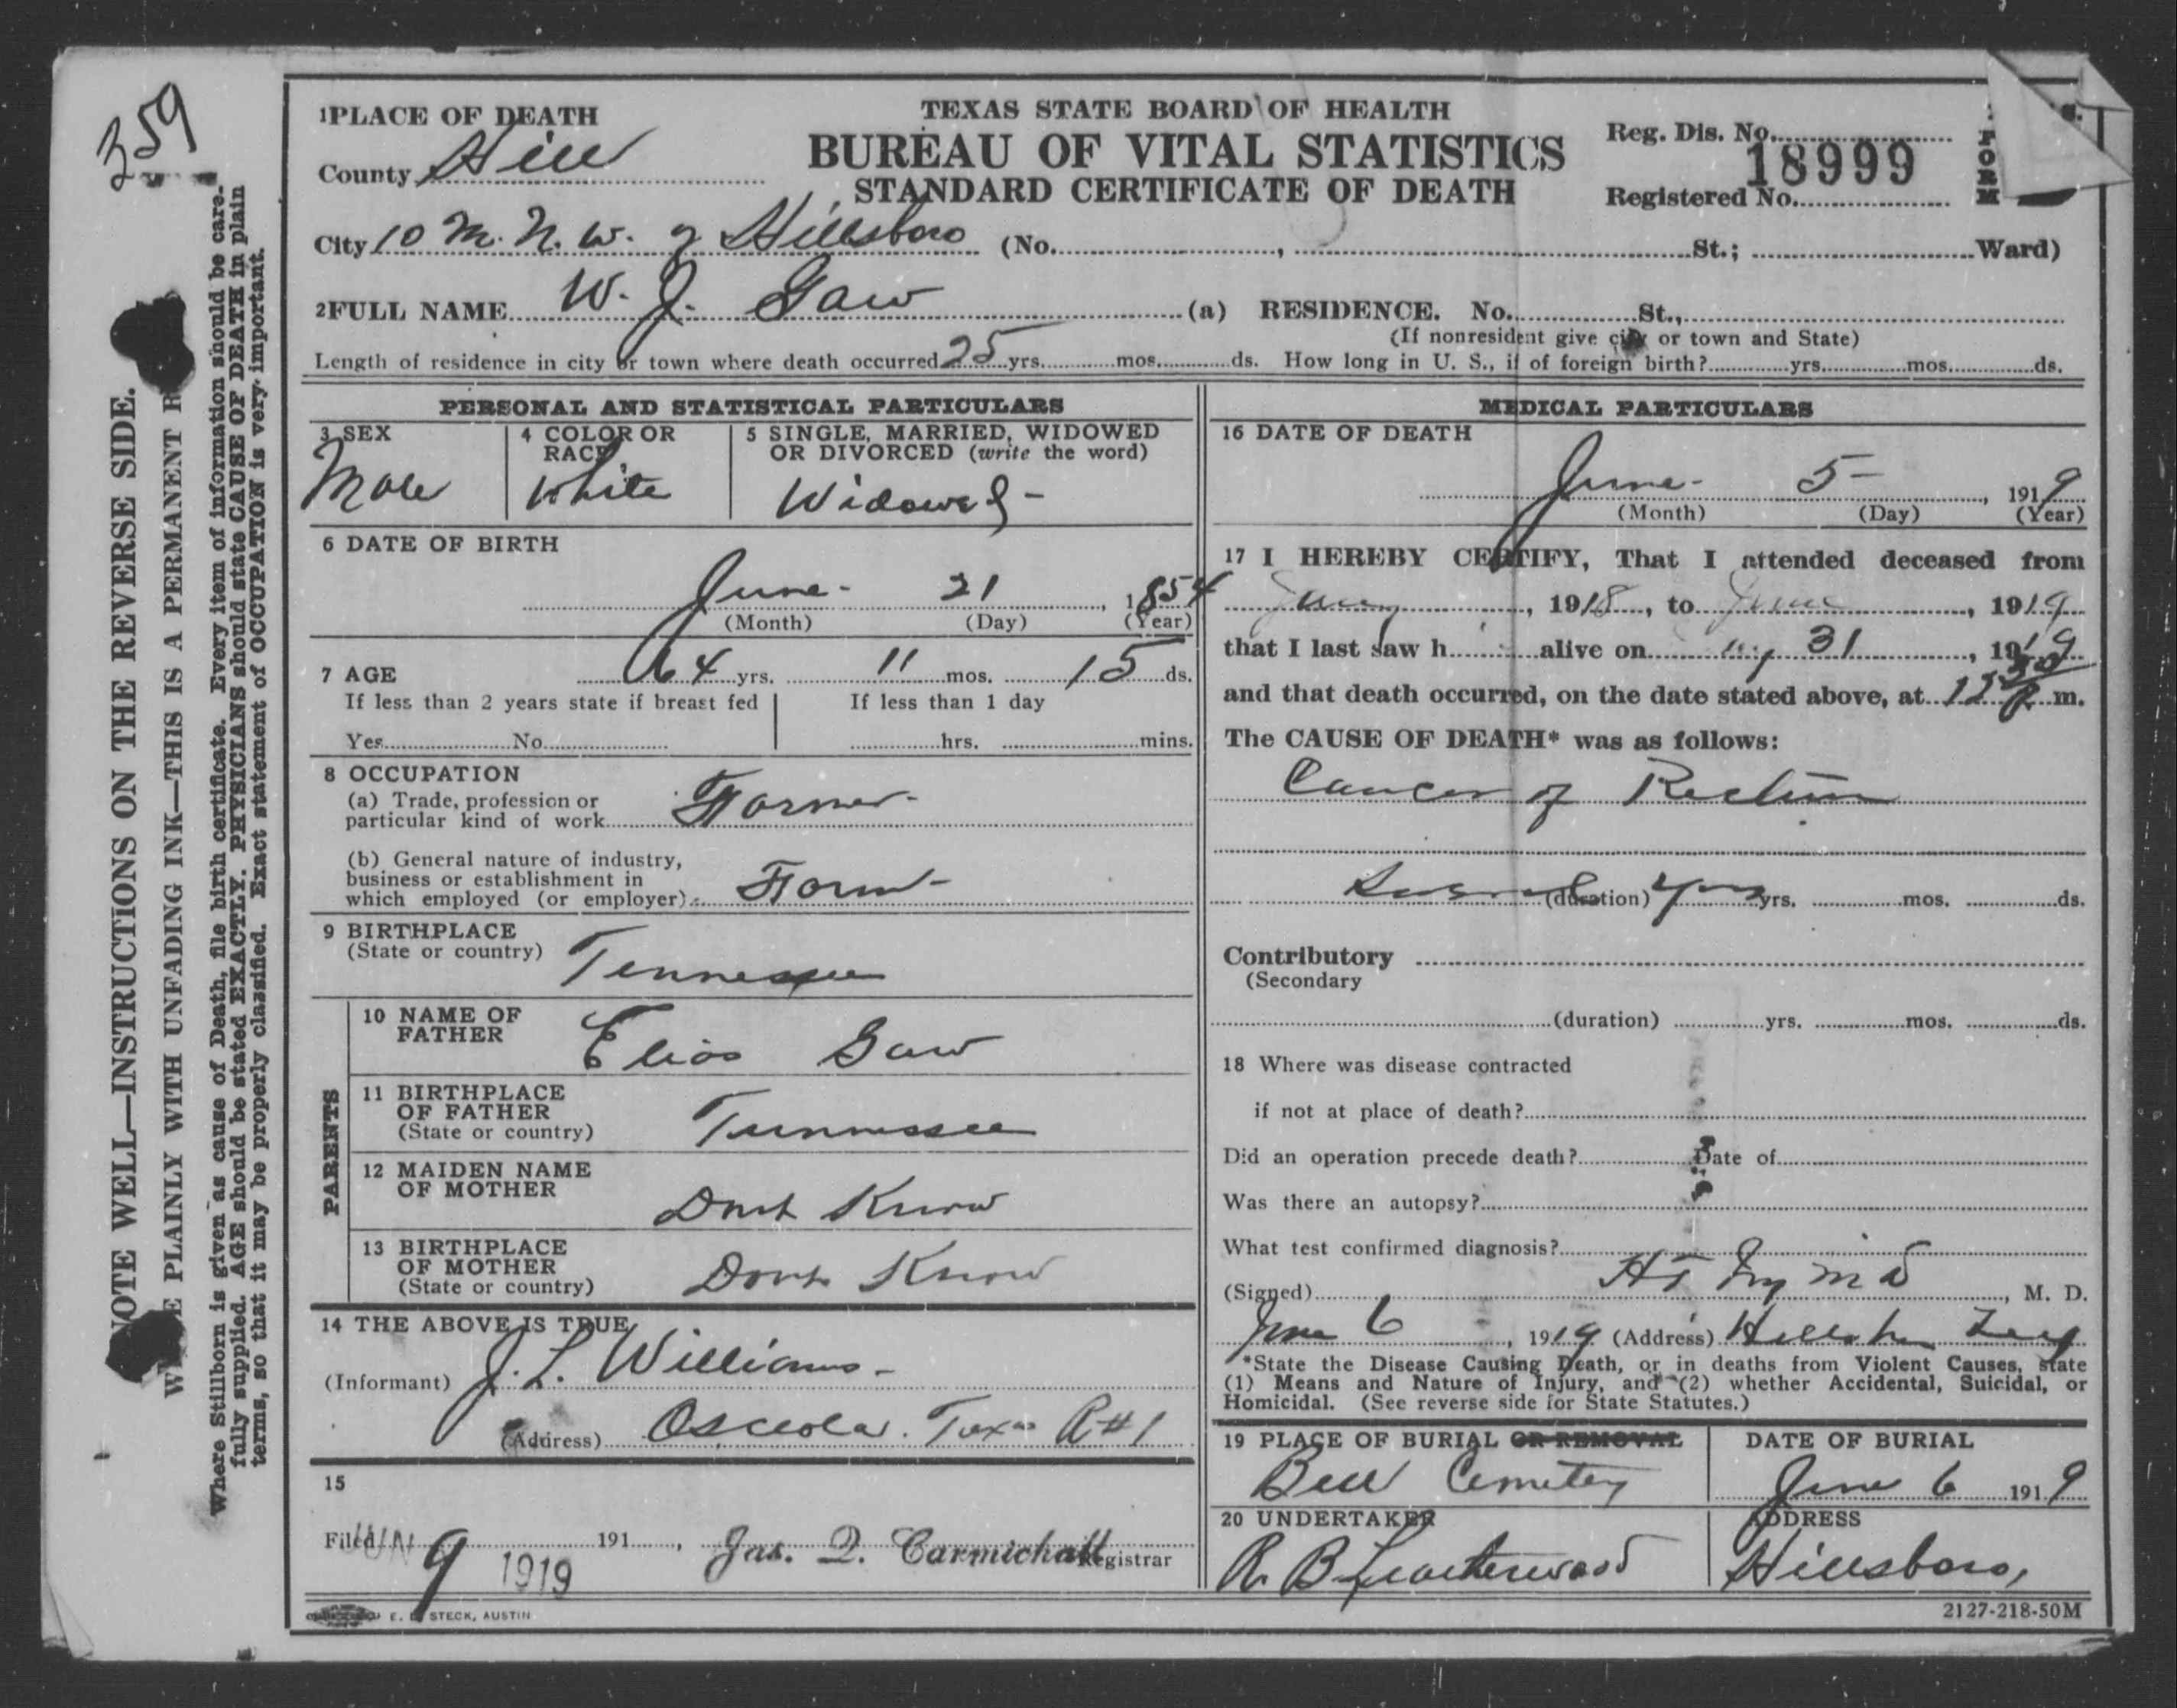 359
NOTE WELL—INSTRUCTIONS ON THE REVERSE SIDE.
PLAINLY WITH UNFADING INK—THIS IS A PERMANENT R
Where Stillborn is given as cause of Death, file birth certificate. Every item of information should be care-
fully supplied. AGE should be stated EXACTLY. PHYSICIANS should state CAUSE OF DEATH in plain
terms, so that it may be properly classified. Exact statement of OCCUPATION is very important.
1PLACE OF DEATH
County Hill
TEXAS STATE BOARD OF HEALTH
BUREAU OF VITAL STATISTICS
STANDARD CERTIFICATE OF DEATH
Reg. Dis. No.
Registered No. 18999
FORM
City 10 M. N. W. of Hillsboro (No. , St.; Ward)
2FULL NAME W. J. Gaw (a) RESIDENCE. No. St.,
(If nonresident give city or town and State)
Length of residence in city or town where death occurred 25 yrs. mos. ds. How long in U. S., if of foreign birth? yrs. mos. ds.
PERSONAL AND STATISTICAL PARTICULARS
3 SEX
Male
4 COLOR OR RACE
White
5 SINGLE, MARRIED, WIDOWED
OR DIVORCED (write the word)
Widowed -
6 DATE OF BIRTH
June - 21 , 1854
(Month) (Day) (Year)
7 AGE 64 yrs. 11 mos. 15 ds.
If less than 2 years state if breast fed If less than 1 day
Yes No hrs. mins.
8 OCCUPATION
(a) Trade, profession or
particular kind of work Farmer -
(b) General nature of industry,
business or establishment in
which employed (or employer) Farm -
9 BIRTHPLACE
(State or country) Tennessee
PARENTS
10 NAME OF
FATHER Elias Gaw
11 BIRTHPLACE
OF FATHER
(State or country) Tennessee
12 MAIDEN NAME
OF MOTHER Dont Know
13 BIRTHPLACE
OF MOTHER
(State or country) Dont Know
14 THE ABOVE IS TRUE
(Informant) J. L. Williams -
(Address) Osceola. Texas R#1
15
Filed JUN 9 1919 191 , Jas. D. Carmichall Registrar
E. L. STECK, AUSTIN
MEDICAL PARTICULARS
16 DATE OF DEATH
June - 5 - , 1919
(Month) (Day) (Year)
17 I HEREBY CERTIFY, That I attended deceased from
, 1918, to June , 1919
that I last saw h alive on 31 , 1919
and that death occurred, on the date stated above, at 12 30 P m.
The CAUSE OF DEATH* was as follows:
Cancer of Rectum
Several (duration) yrs yrs. mos. ds.
Contributory
(Secondary
(duration) yrs. mos. ds.
18 Where was disease contracted
if not at place of death?
Did an operation precede death? Date of
Was there an autopsy?
What test confirmed diagnosis?
(Signed) M D , M. D.
June 6 , 1919 (Address) Hillsboro Texas
*State the Disease Causing Death, or in deaths from Violent Causes, state
(1) Means and Nature of Injury, and (2) whether Accidental, Suicidal, or
Homicidal. (See reverse side for State Statutes.)
19 PLACE OF BURIAL OR REMOVAL
Bell Cemetery
DATE OF BURIAL
June 6 1919
20 UNDERTAKER
R. B. Leatherwood
ADDRESS
Hillsboro,
2127-218-50M